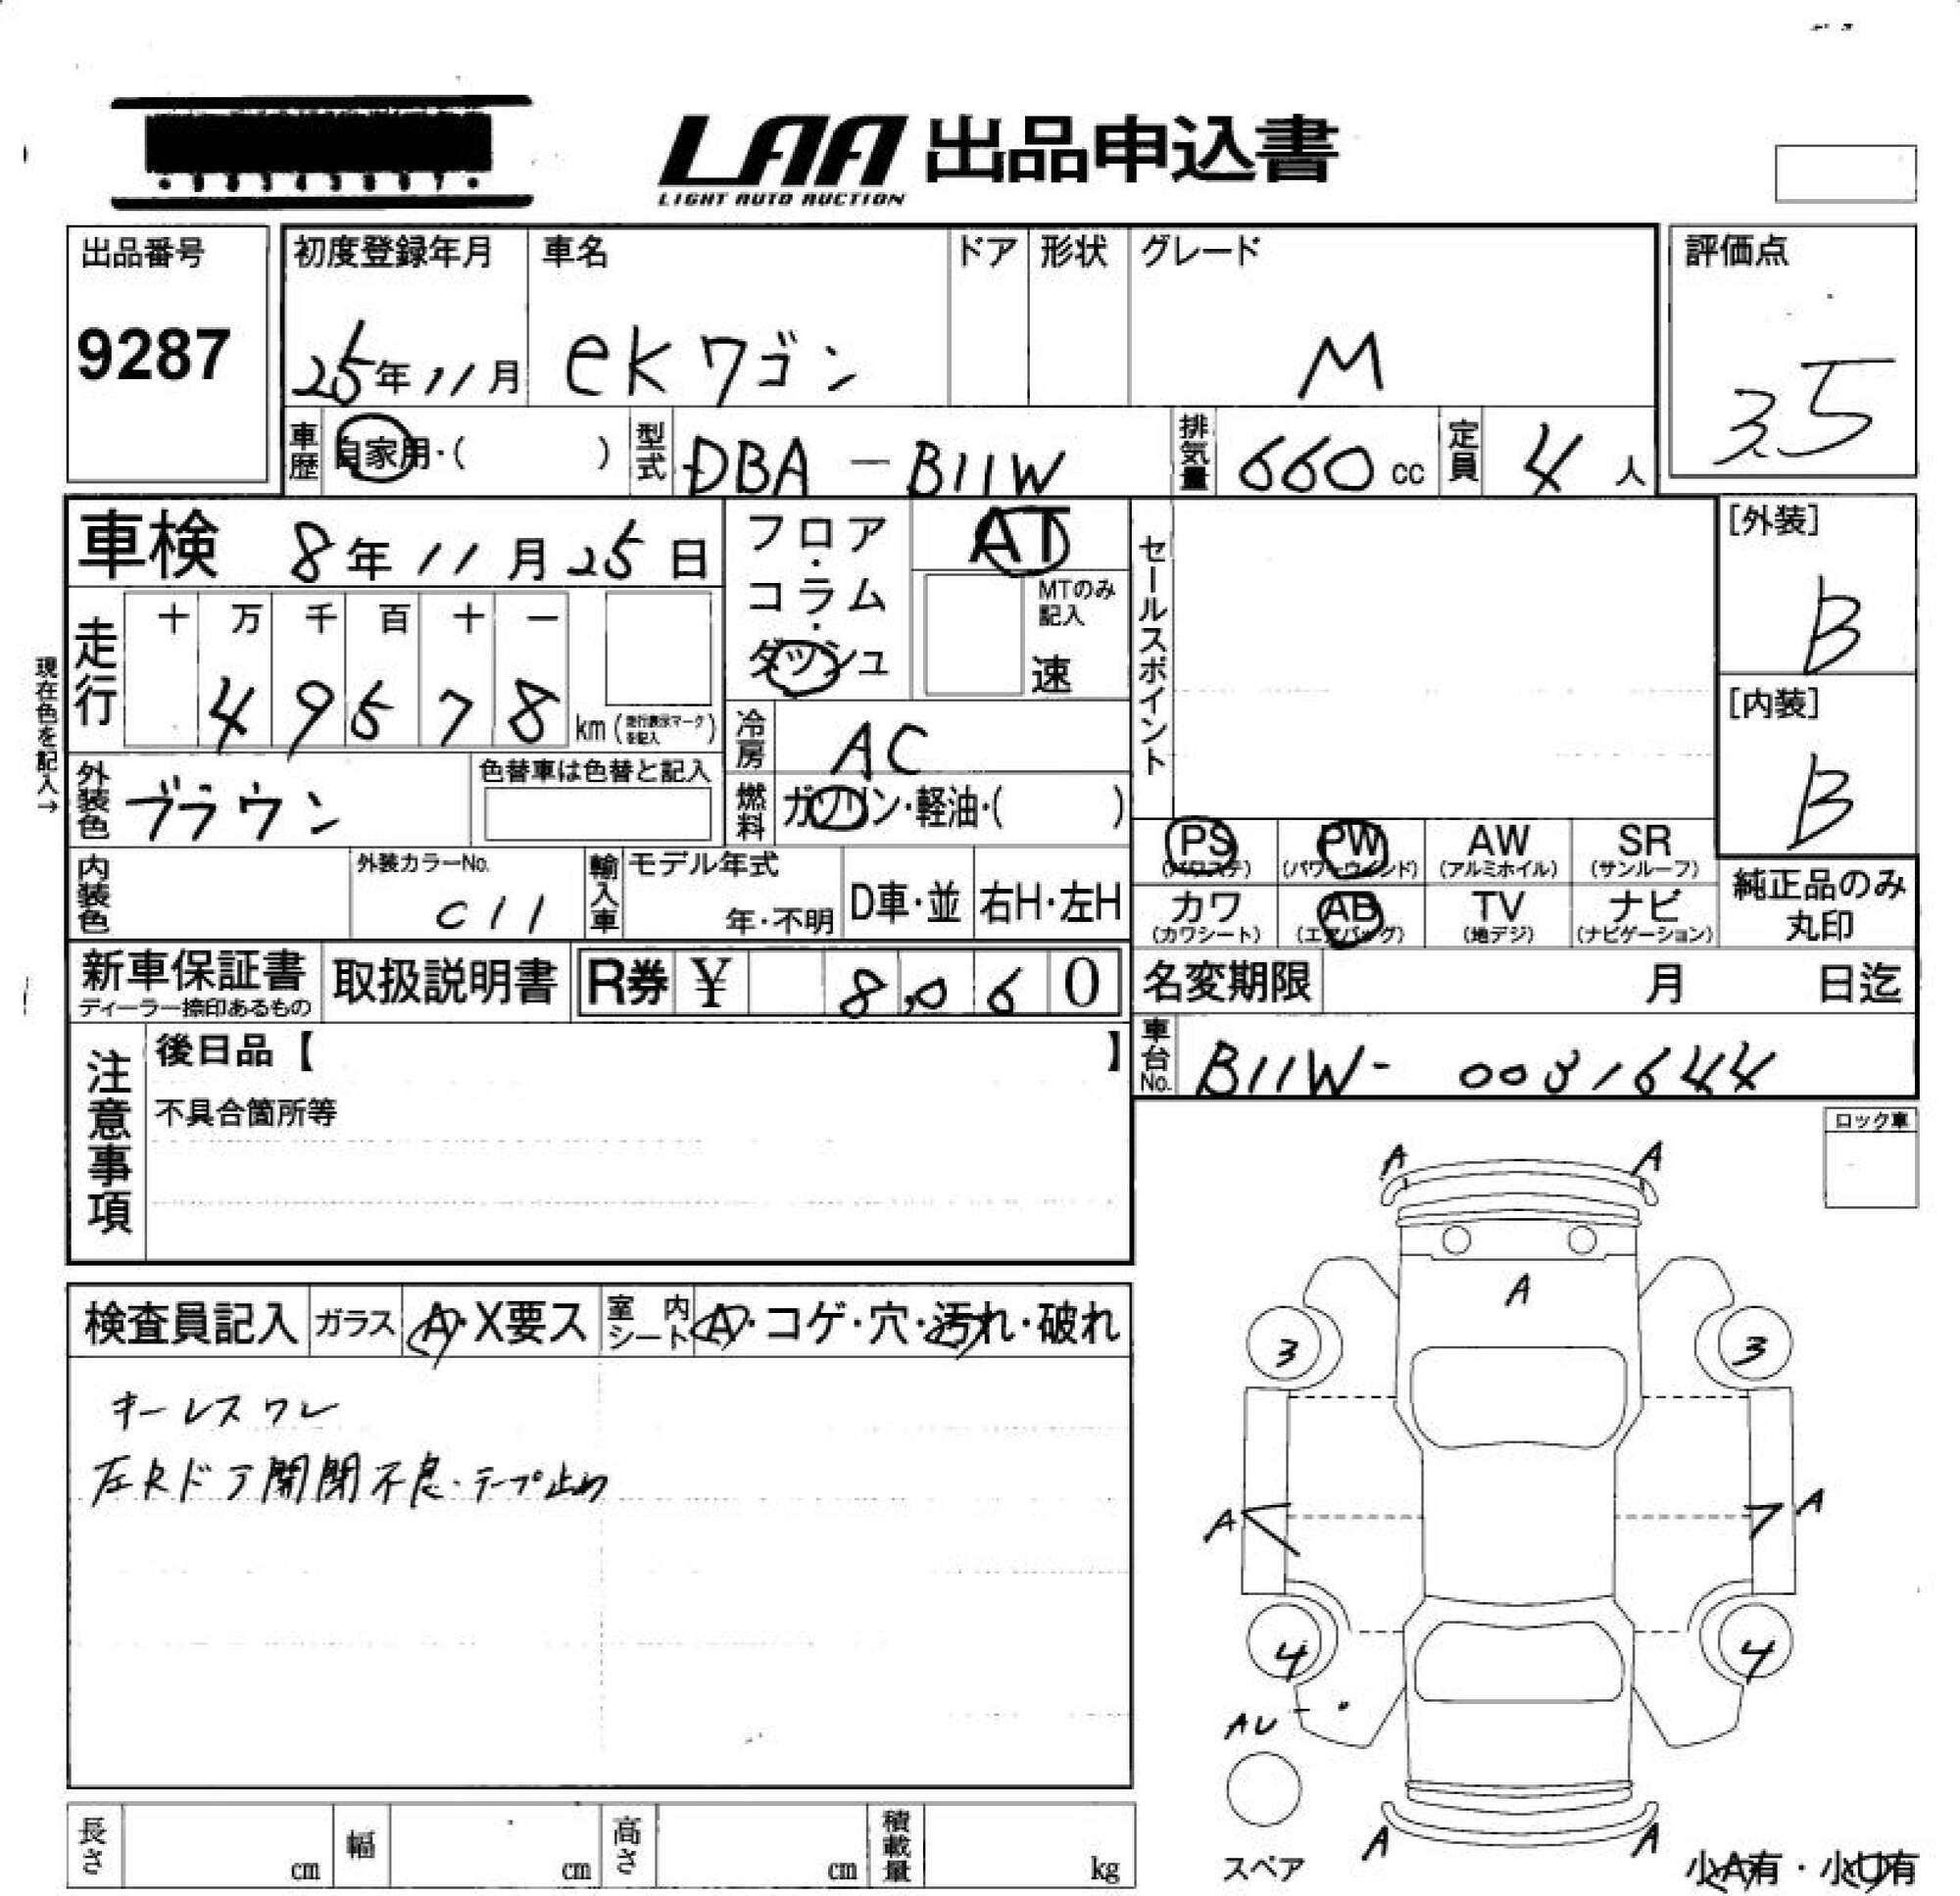 LAA 出品申込書
LIGHT AUTO AUCTION
出品番号
9287
初度登録年月
25年11月
車名
ekワゴン
ドア
形状
グレード
M
評価点
3.5
車歴 自家用・( )
型式 DBA-B11W
排気量 660 cc
定員 4人
車検 8年11月25日
フロア・コラム・ダッシュ
AT
MTのみ記入
速
セールスポイント
[外装]
B
[内装]
B
現在色を記入→
走行 十 万 千 百 十 一
49578 km (走行表示マークを記入)
冷房 AC
外装色 ブラウン
色替車は色替と記入
燃料 ガソリン・軽油・( )
内装色
外装カラーNo.
C11
輸入車
モデル年式
年・不明
D車・並
右H・左H
PS (パワステ)
PW (パワーウィンド)
AW (アルミホイル)
SR (サンルーフ)
カワ (カワシート)
AB (エアバッグ)
TV (地デジ)
ナビ (ナビゲーション)
純正品のみ
丸印
新車保証書
ディーラー捺印あるもの
取扱説明書
R券 ¥ 8,060
名変期限 月 日迄
車台No. B11W-0031644
注意事項
後日品【 】
不具合箇所等
ロック車
検査員記入 ガラス A・X要ス 室内シート A・コゲ・穴・汚れ・破れ
キーレスワレ
左Rドア開閉不良・テープ止め
A A
A
3 3
A A
4 4
AU
A A
スペア
小A有・小U有
長さ cm 幅 cm 高さ cm 積載量 kg